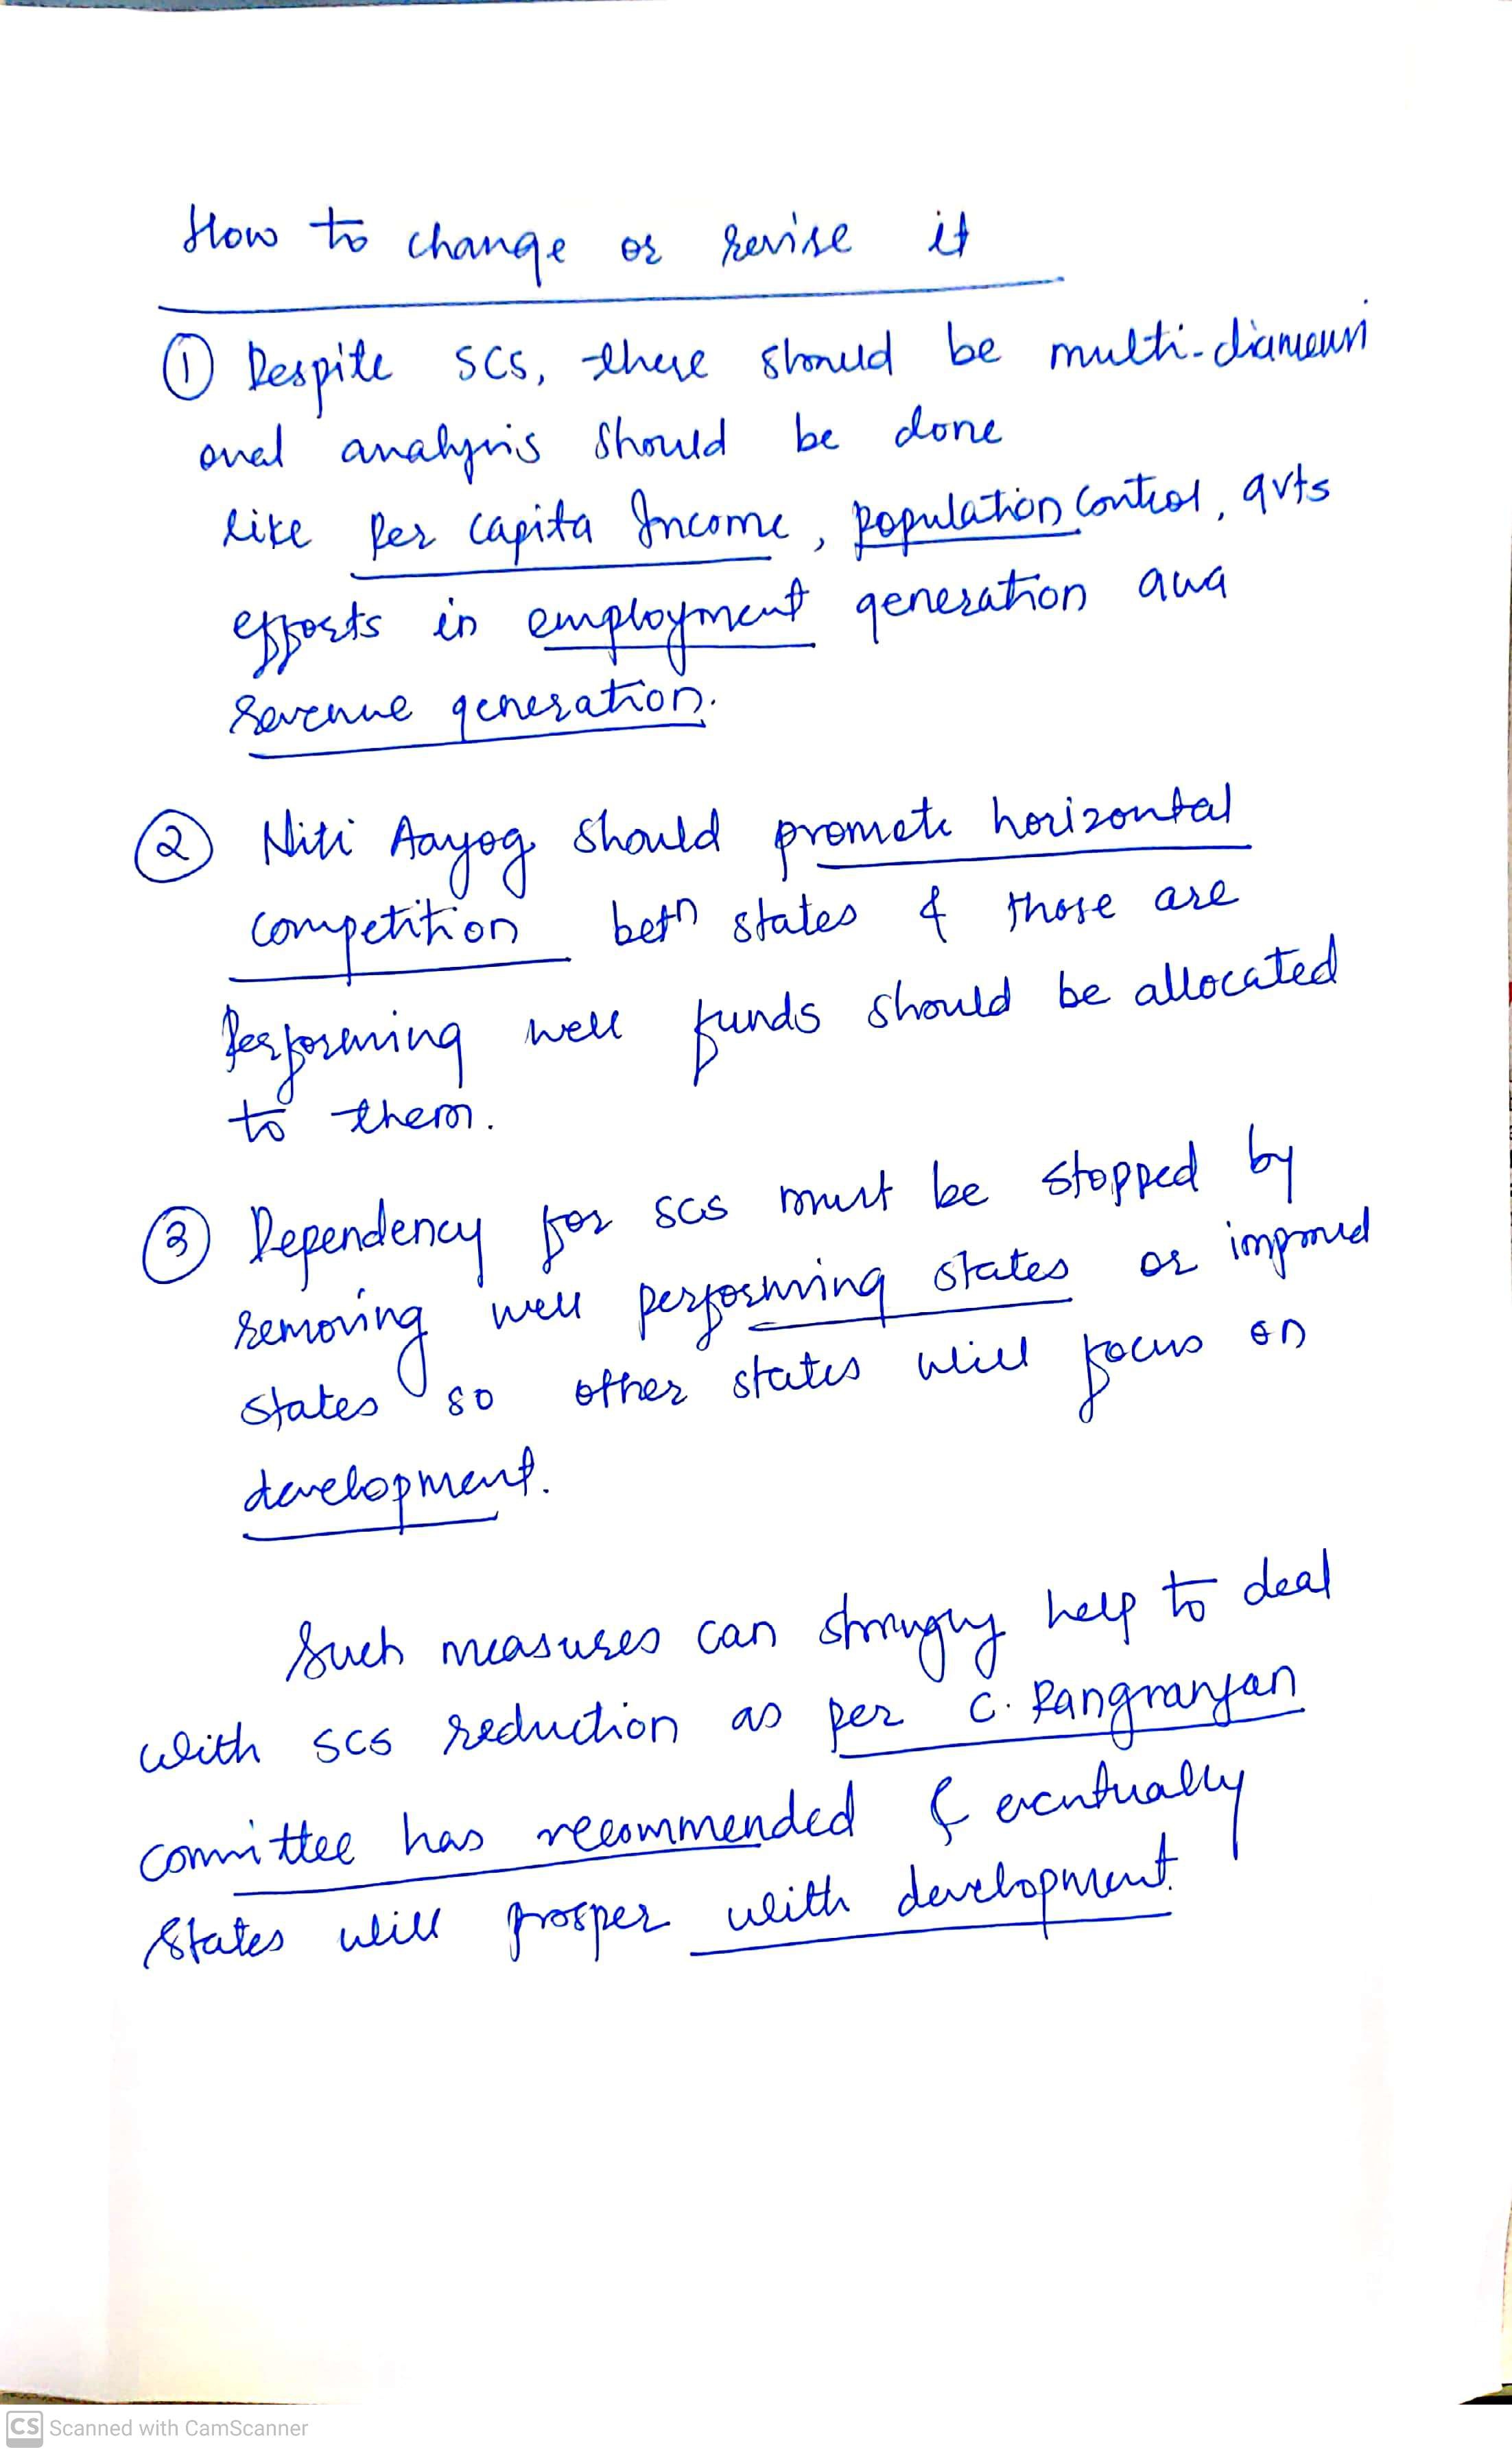 How to change or revise it
① Despite SCS, there should be multi-diamensi
onal analysis should be done
like Per capita Income, population control, gvts
efforts in employment generation and
revenue generation.
② Niti Aayog should promote horizontal
competition betn states & those are
Performing well funds should be allocated
to them.
③ Dependency for SCS must be stopped by
removing well performing states or improved
states so other states will focus on
development.
Such measures can strongly help to deal
with SCS reduction as per C. Rangranjan
committee has recommended & eventually
States will prosper with development.
CS Scanned with CamScanner